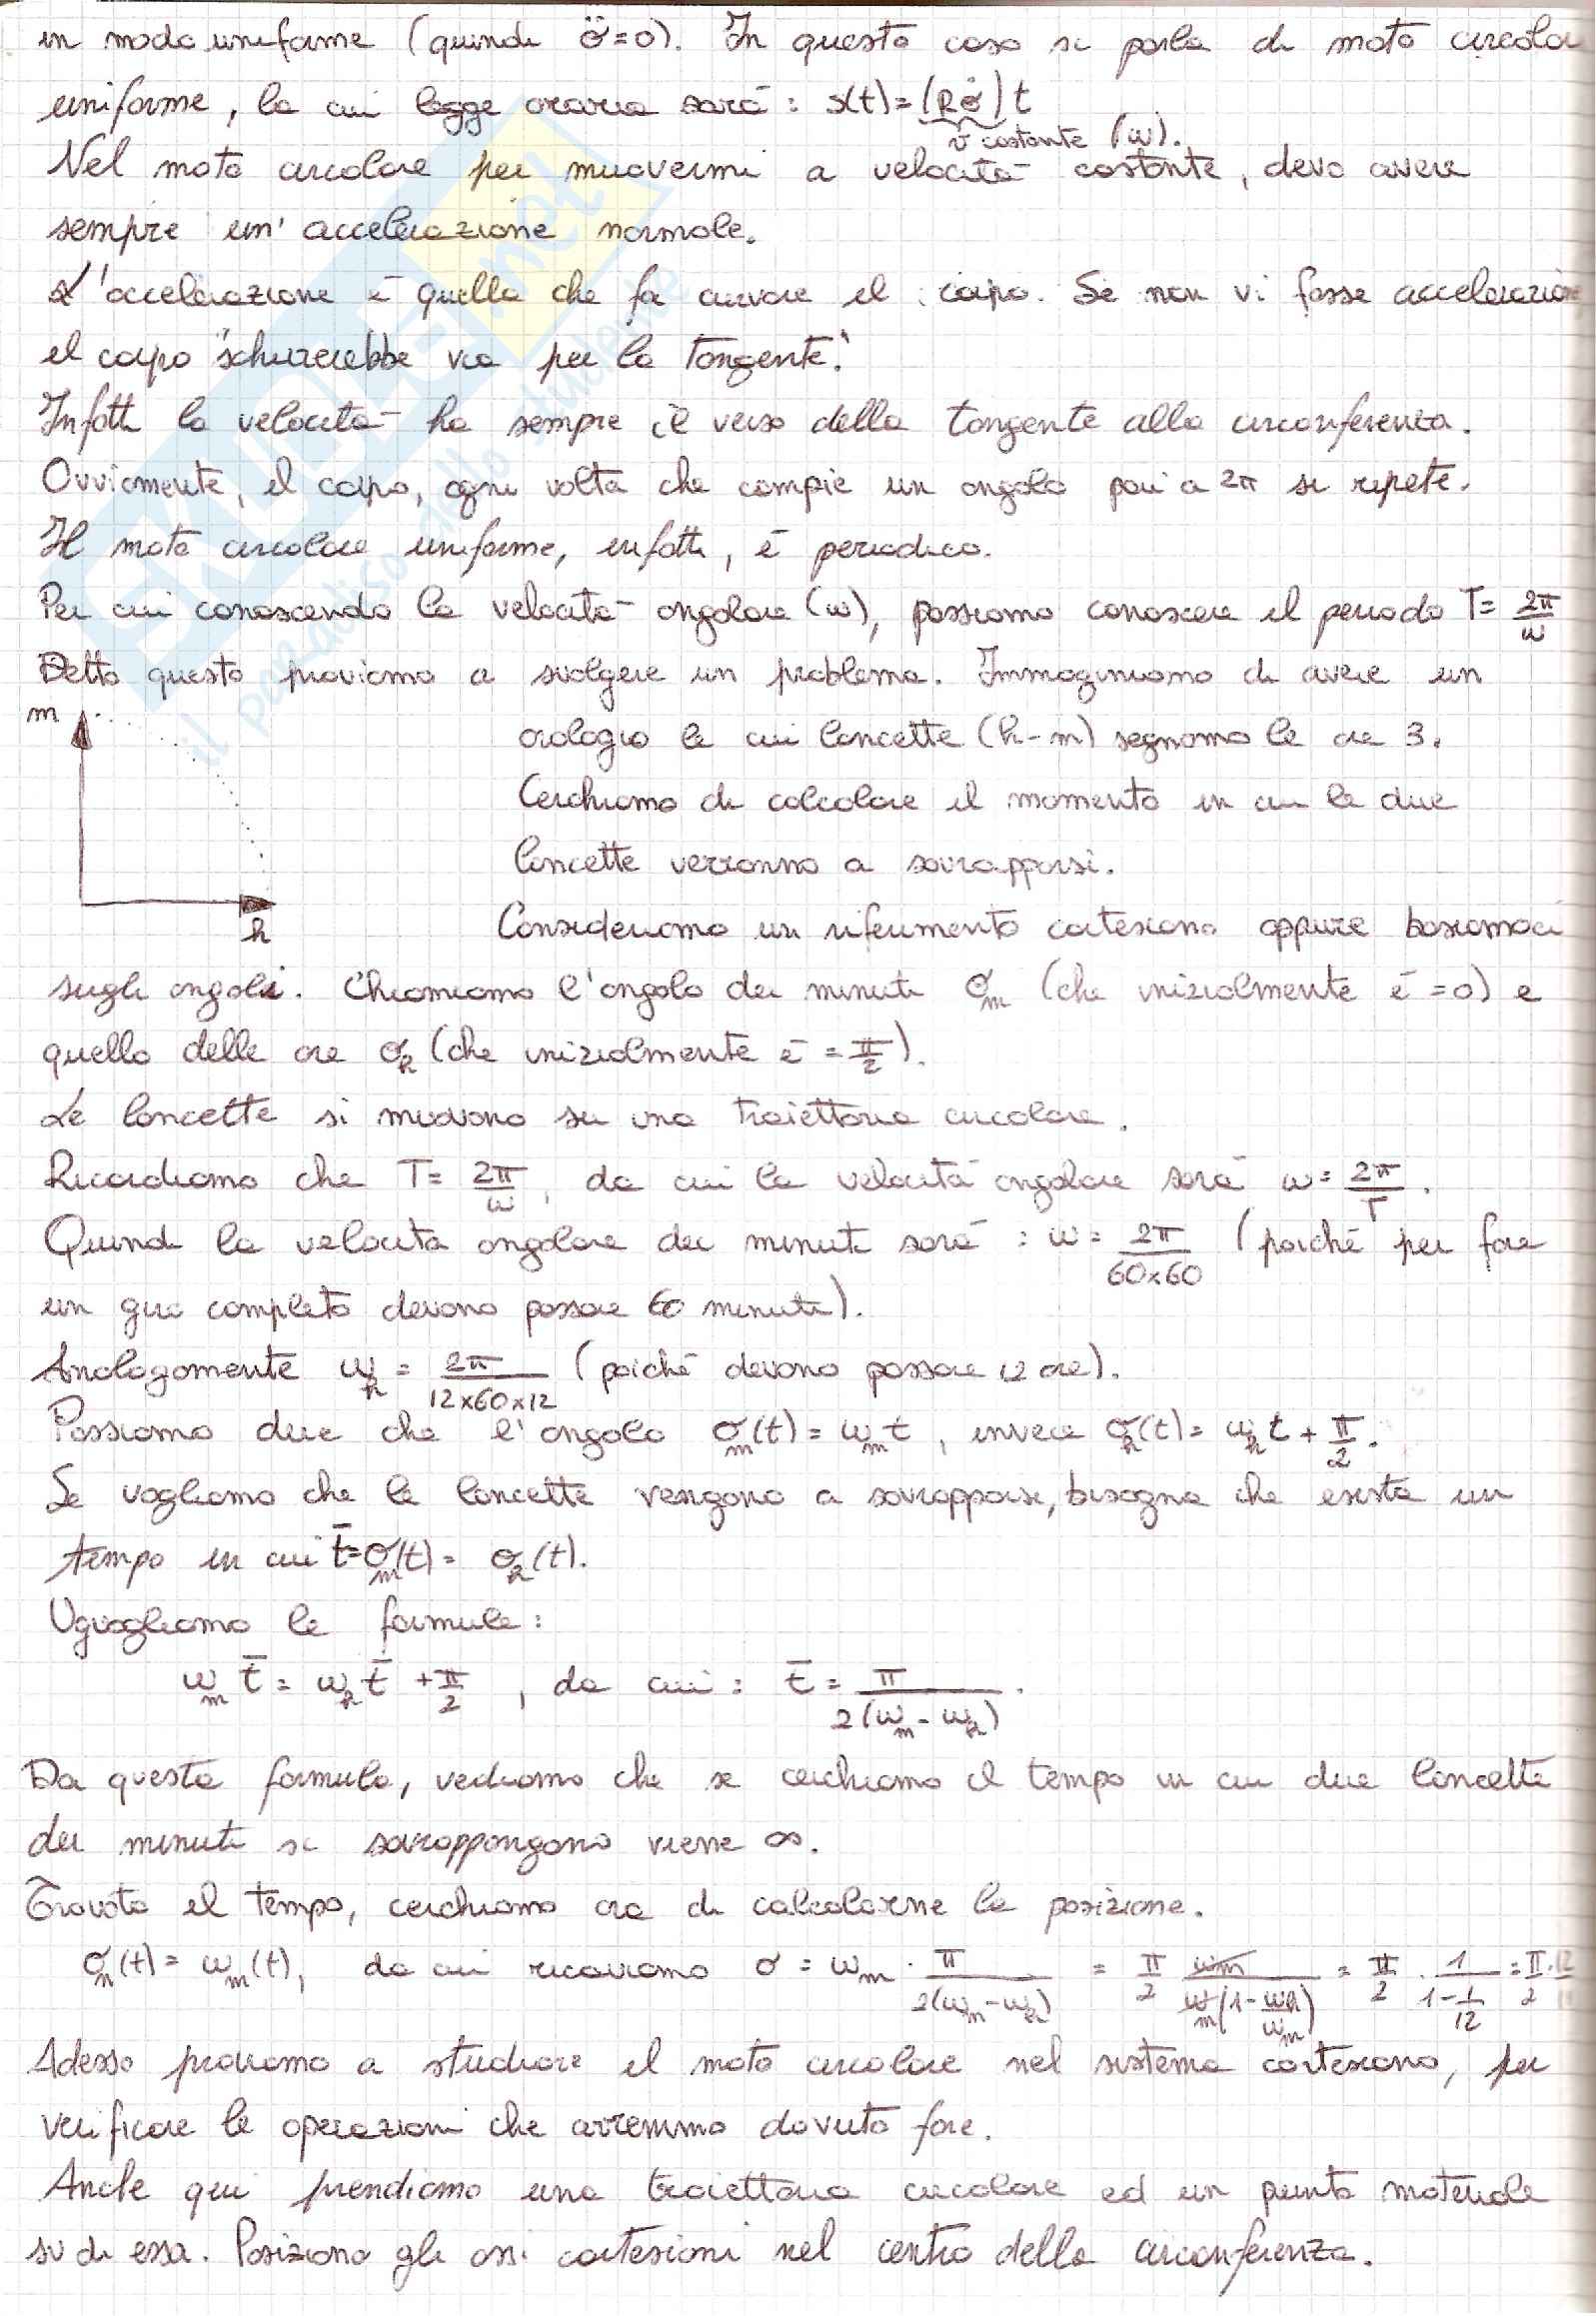 in modo uniforme (quindi σ̈=0). In questo caso si parla di moto circolare
uniforme, la cui legge oraria sarà: s(t)=(Rσ̇)t
v costante (ω).
Nel moto circolare per muovermi a velocità costante, devo avere
sempre un'accelerazione normale.
L'accelerazione è quella che fa curvare il corpo. Se non vi fosse accelerazione
il corpo "schizzerebbe via per la tangente".
Infatti la velocità ha sempre il verso della tangente alla circonferenza.
Ovviamente, il corpo, ogni volta che compie un angolo pari a 2π si ripete.
Il moto circolare uniforme, infatti, è periodico.
Per cui conoscendo la velocità angolare (ω), possiamo conoscere il periodo T= 2π/ω
Detto questo proviamo a svolgere un problema. Immaginiamo di avere un
m
orologio le cui lancette (h-m) segnano le ore 3.
Cerchiamo di calcolare il momento in cui le due
lancette verranno a sovrapporsi.
h
Consideriamo un riferimento cartesiano oppure basiamoci
sugli angoli. Chiamiamo l'angolo dei minuti σm (che inizialmente è =0) e
quello delle ore σh (che inizialmente è = π/2).
Le lancette si muovono su una traiettoria circolare.
Ricordiamo che T= 2π/ω, da cui la velocità angolare sarà ω= 2π/T.
Quindi la velocità angolare dei minuti sarà: ω= 2π/60x60 (poiché per fare
un giro completo devono passare 60 minuti).
Analogamente ωh = 2π/12x60x12 (poiché devono passare 12 ore).
Possiamo dire che l'angolo σm(t)= ωm t, invece σh(t)= ωh t + π/2.
Se vogliamo che le lancette vengano a sovrapporsi, bisogna che esista un
tempo in cui t̄=σm(t)= σh(t).
Uguagliamo le formule:
ωm t̄ = ωh t̄ + π/2, da cui: t̄ = π/2(ωm - ωh).
Da questa formula, vediamo che se cerchiamo il tempo in cui due lancette
dei minuti si sovrappongono viene ∞.
Trovato il tempo, cerchiamo ora di calcolarne la posizione.
σm(t)= ωm(t), da cui ricaviamo σ = ωm · π/2(ωm-ωh) = π/2 ωm/ωm(1-ωh/ωm) = π/2 · 1/1-1/12 = π/2 · 12/11
Adesso proviamo a studiare il moto circolare nel sistema cartesiano, per
verificare le operazioni che avremmo dovuto fare.
Anche qui prendiamo una traiettoria circolare ed un punto materiale
su di essa. Posiziono gli assi cartesiani nel centro della circonferenza.
SKUOLA.net
il paradiso dello studente